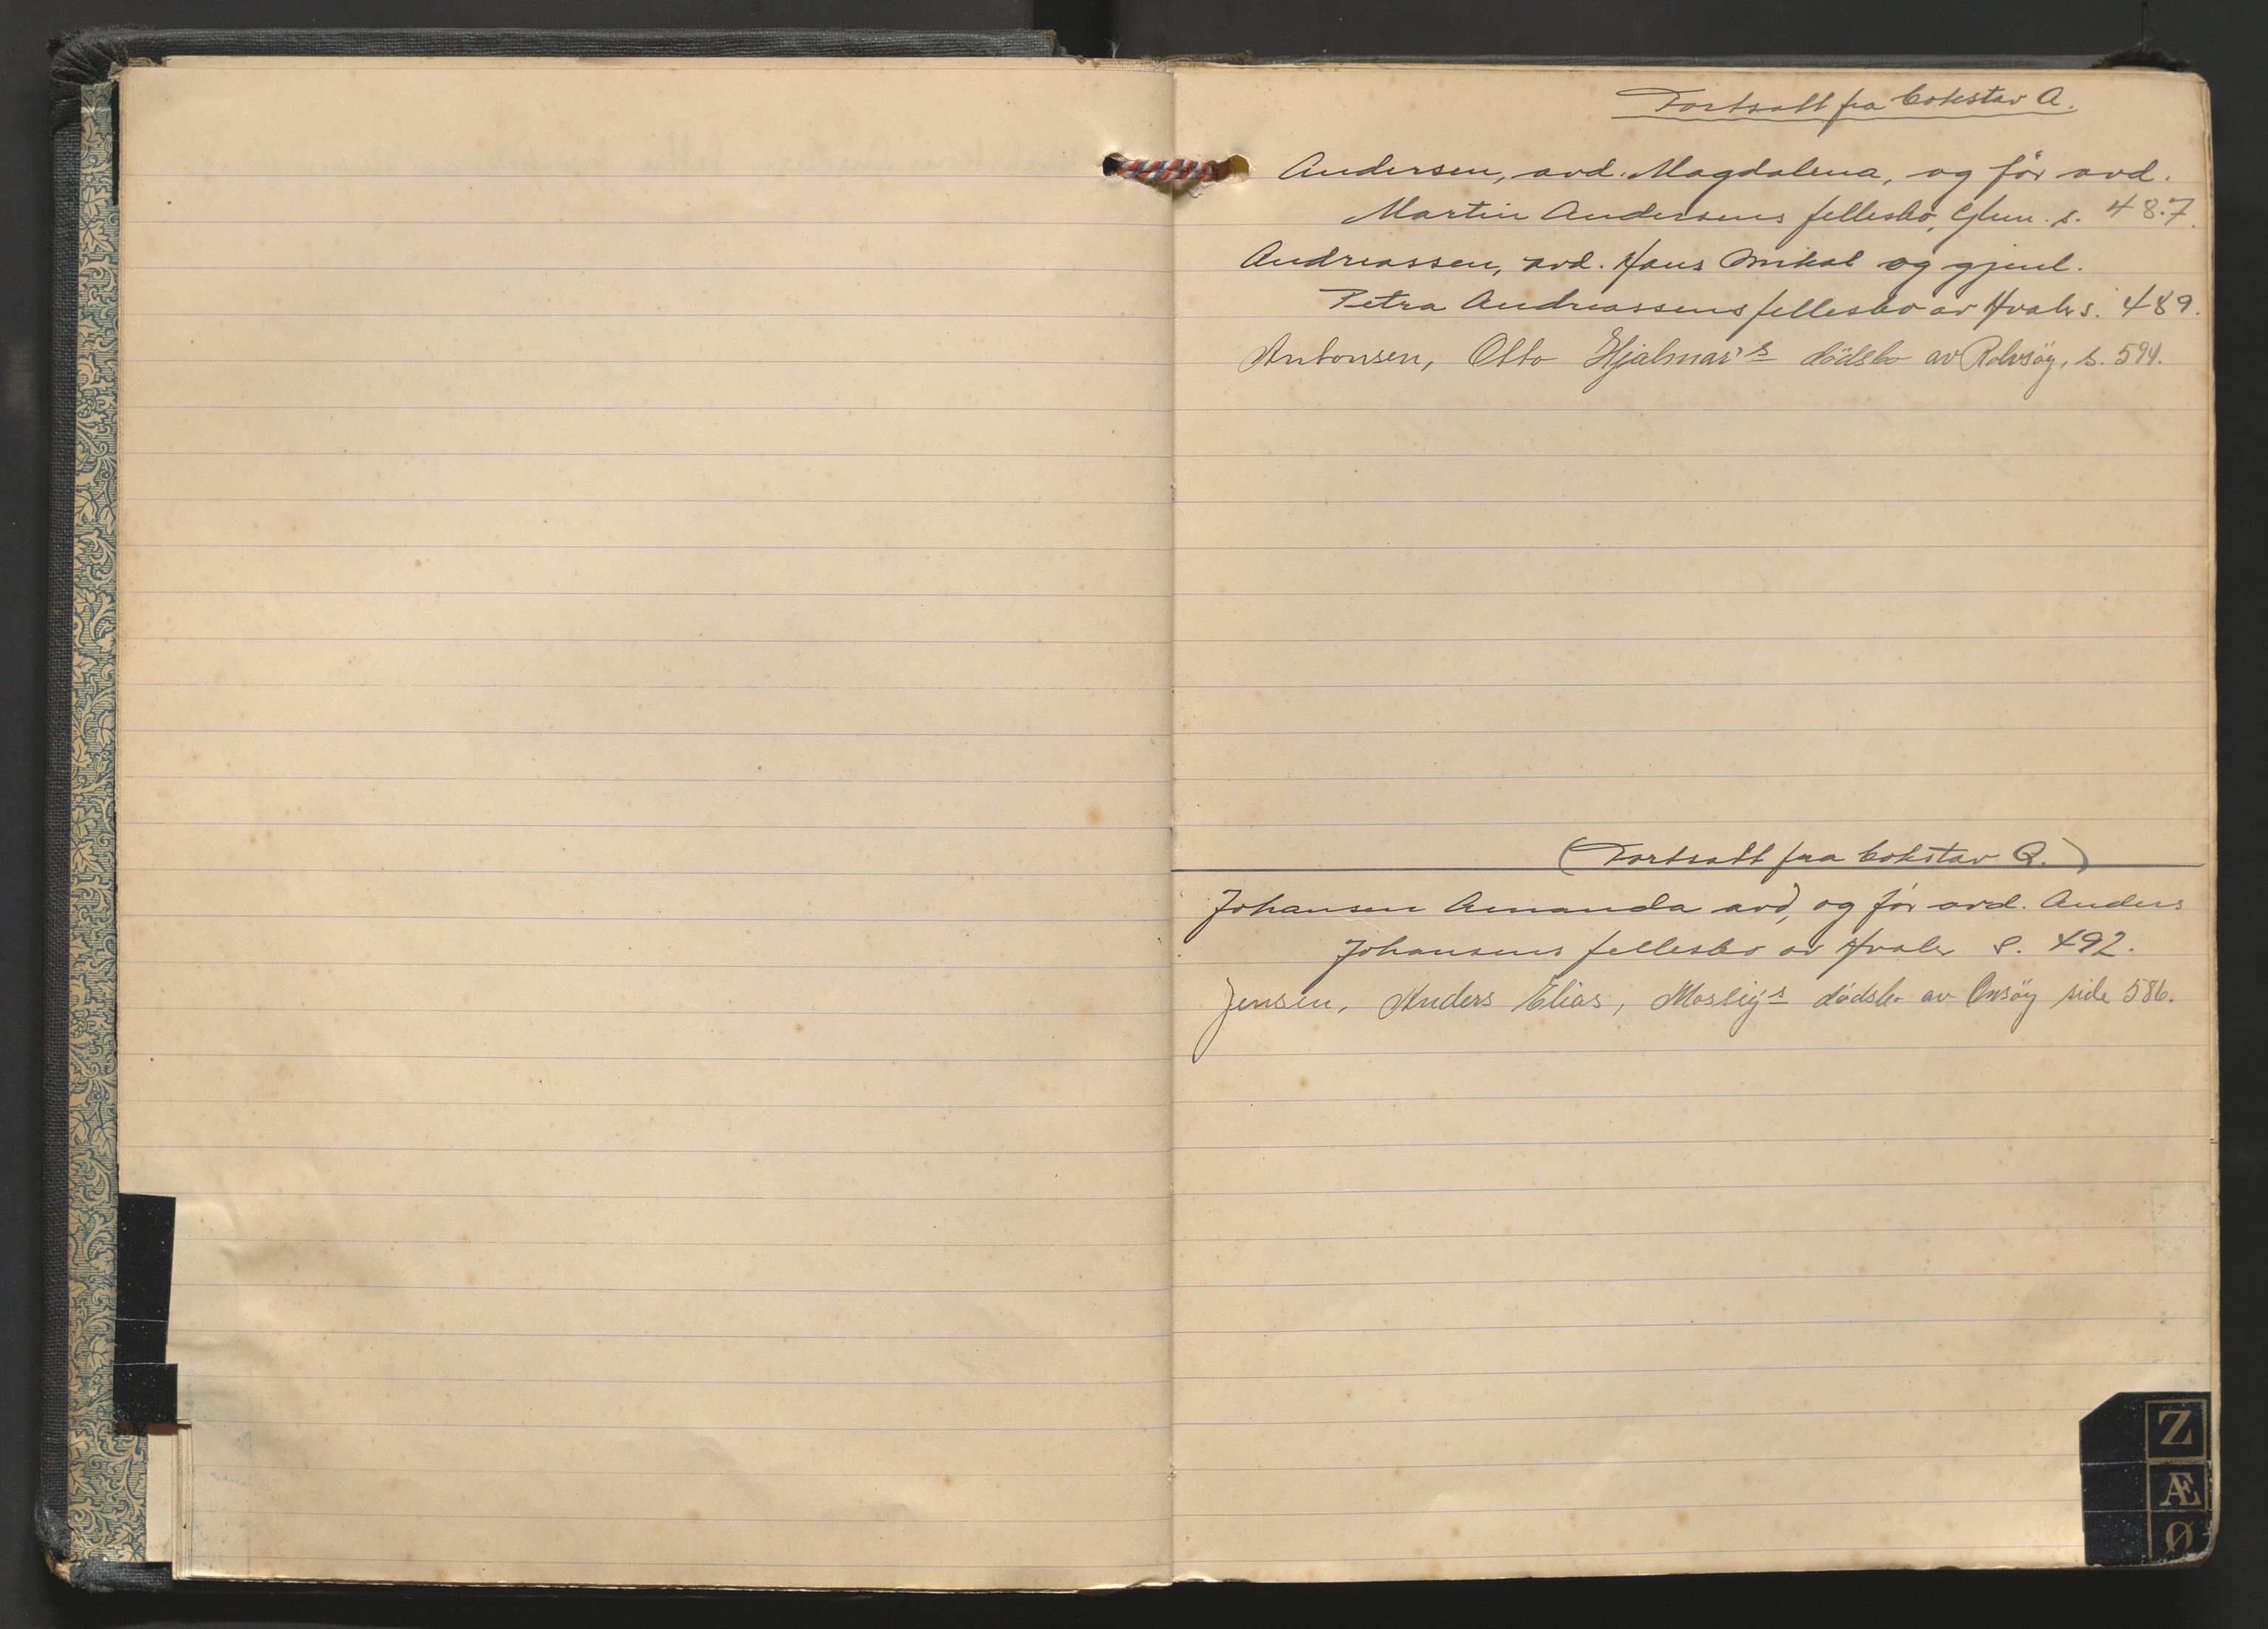 Fortsatt fra bokstav A.
Andersen, avd. Magdalena, og før avd.
Martin Andersens fellesbo, Glem. s. 487.
Andreassen, avd. Hans Mikal og gjenl.
Petra Andreassens fellesbo av Hvaler s. 489.
Antonsen, Otto Hjalmar's dödsbo av Rolvsöy, s. 594.
(Fortsatt fra bokstav
Johansen Amanda avd, og før avd. Anders
Johansens fellesbo av Hvaler s. 492.
Jensen, Anders Elias, dödsbo av Onsöy side 586.
Z
Æ
Ø